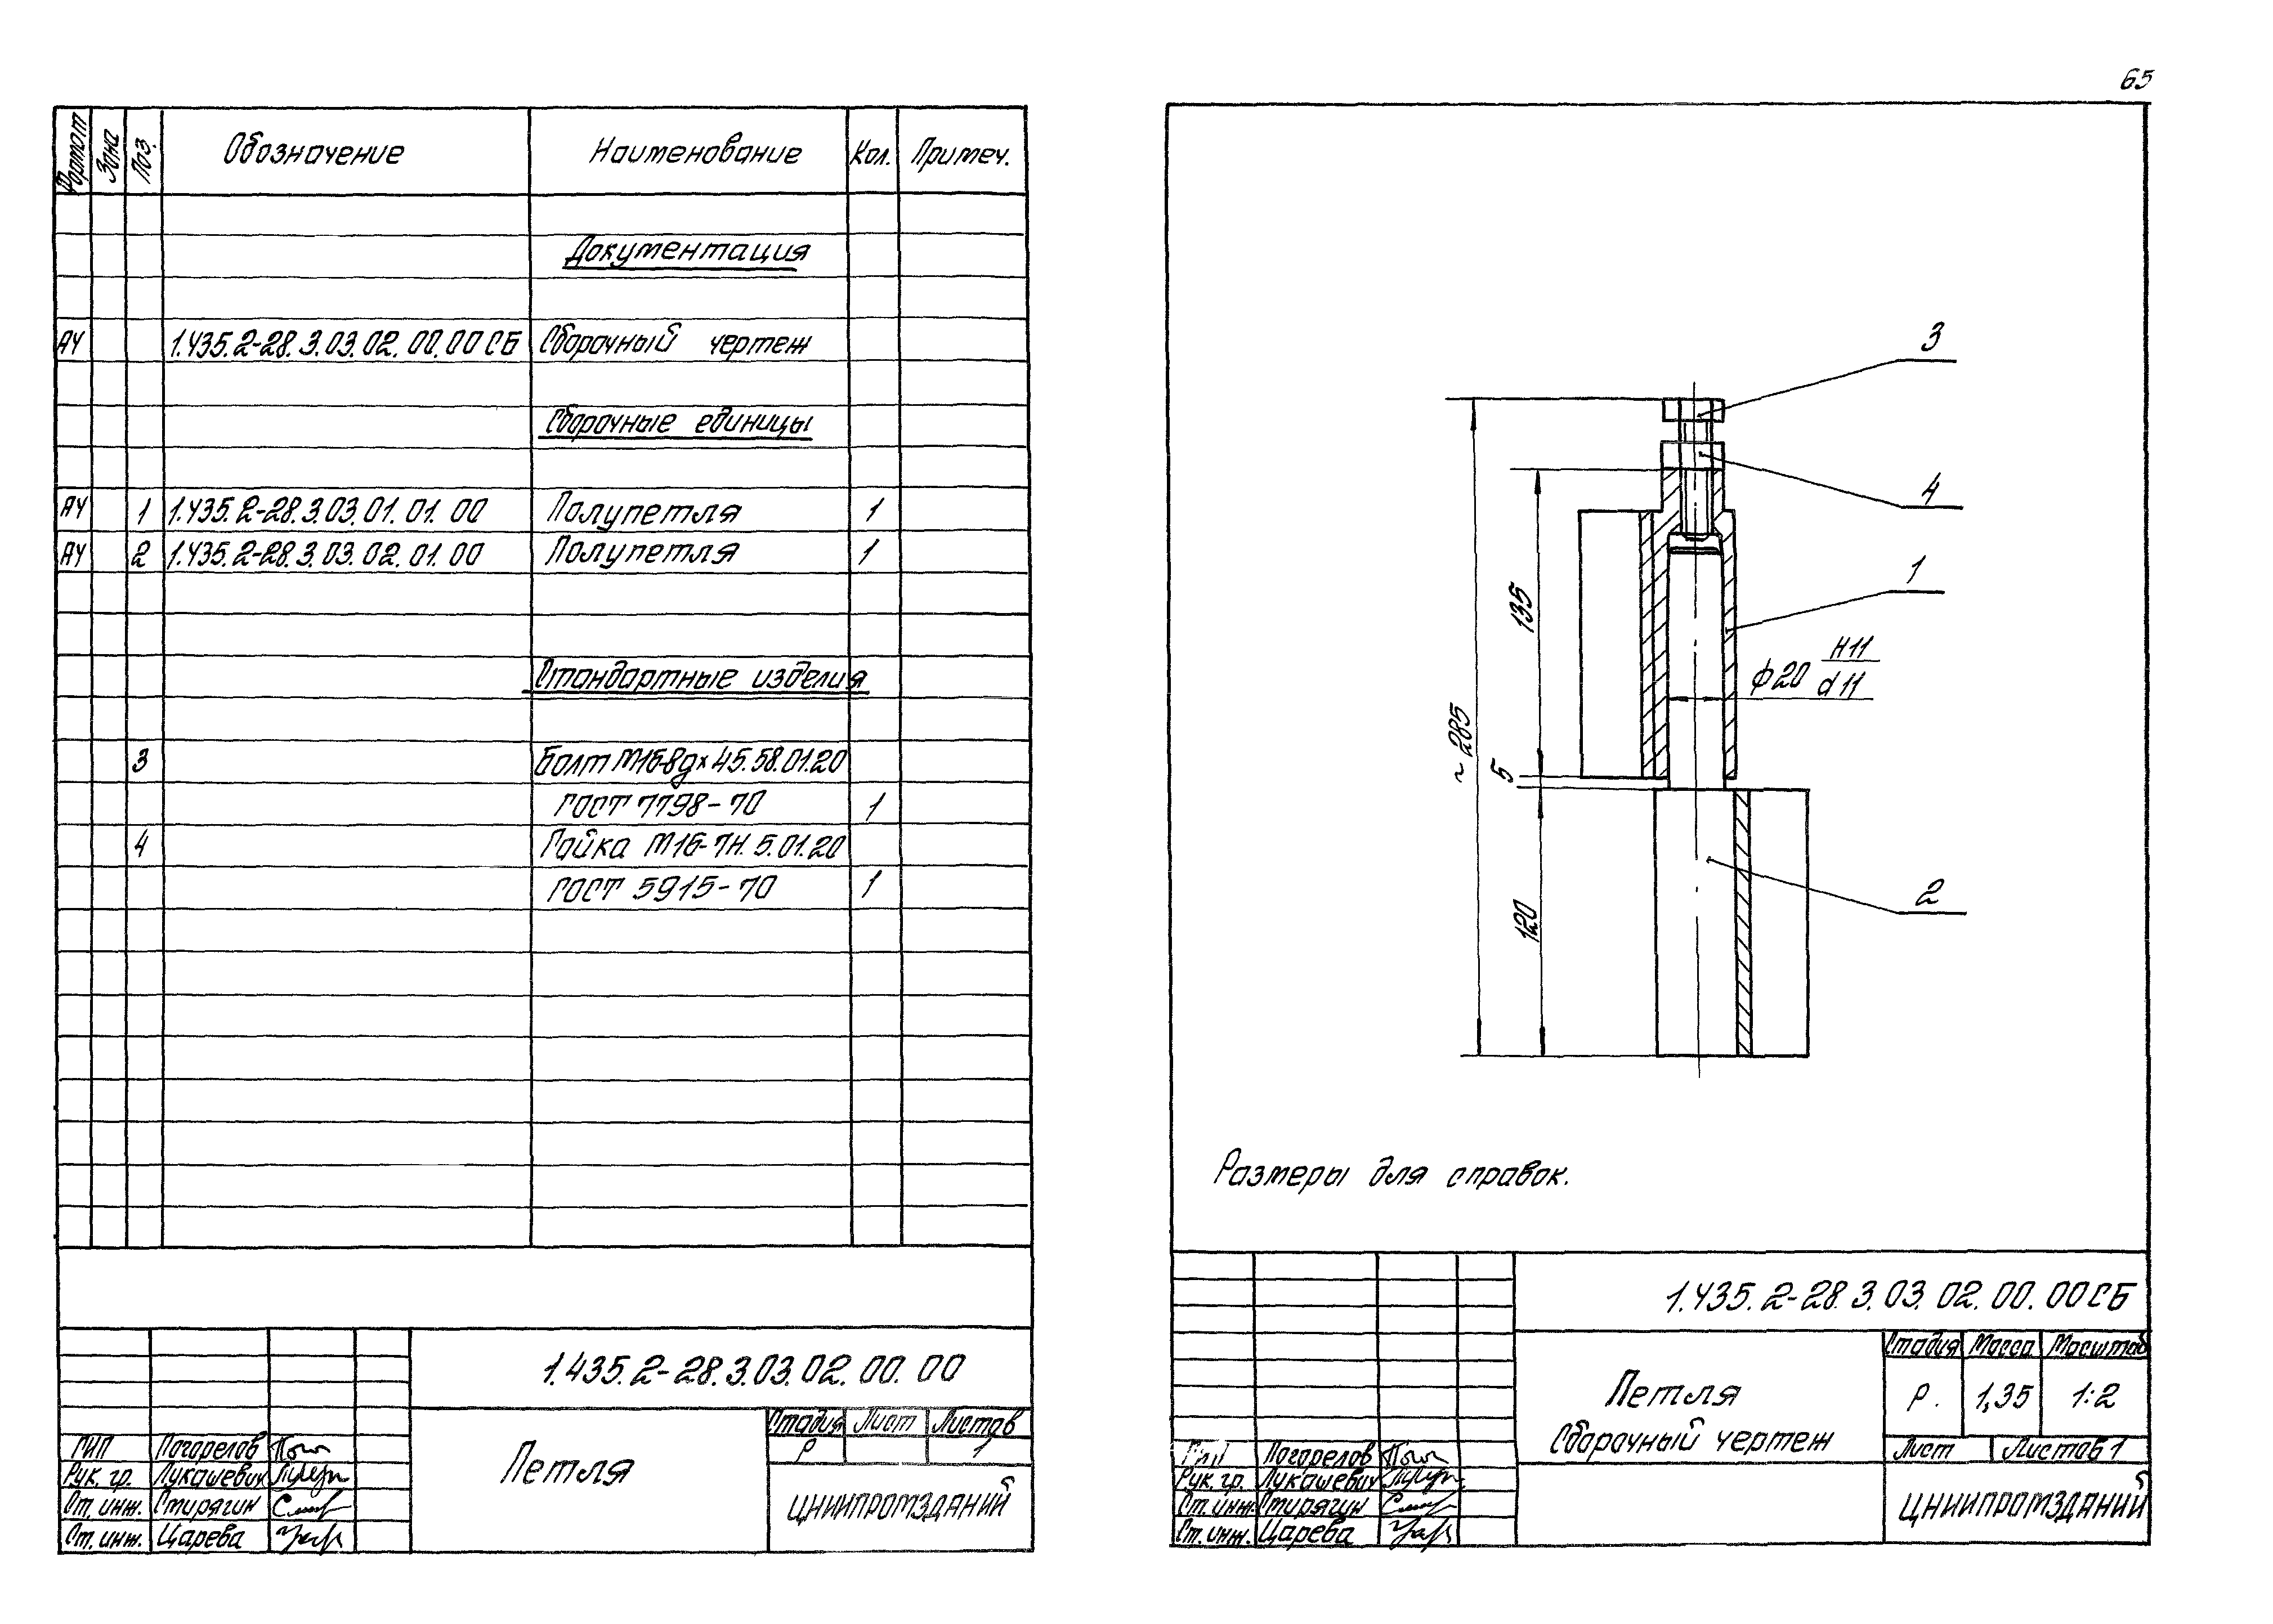 65
Формат Зона Поз. Обозначение Наименование Кол. Примеч.
Документация
А4 1.435.2-28.3.03.02.00.00СБ Сборочный чертеж
Сборочные единицы
А4 1 1.435.2-28.3.03.01.01.00 Полупетля 1
А4 2 1.435.2-28.3.03.02.01.00 Полупетля 1
Стандартные изделия
3 Болт М16-8g×45.58.01.20
ГОСТ 7798-70 1
4 Гайка М16-7Н.5.01.20
ГОСТ 5915-70 1
1.435.2-28.3.03.02.00.00
Петля
Стадия Лист Листов
Р 1
ЦНИИПРОМЗДАНИЙ
ГИП Погорелов
Рук. гр. Лукашевич
Ст. инж. Стирягин
Ст. инж. Царева
3
4
1
2
~285
135
5
120
ϕ20 H11
d11
Размеры для справок.
1.435.2-28.3.03.02.00.00СБ
Петля
Сборочный чертеж
Стадия Масса Масштаб
Р. 1,35 1:2
Лист Листов 1
ЦНИИПРОМЗДАНИЙ
ГИП Погорелов
Рук. гр. Лукашевич
Ст. инж. Стирягин
Ст. инж. Царева